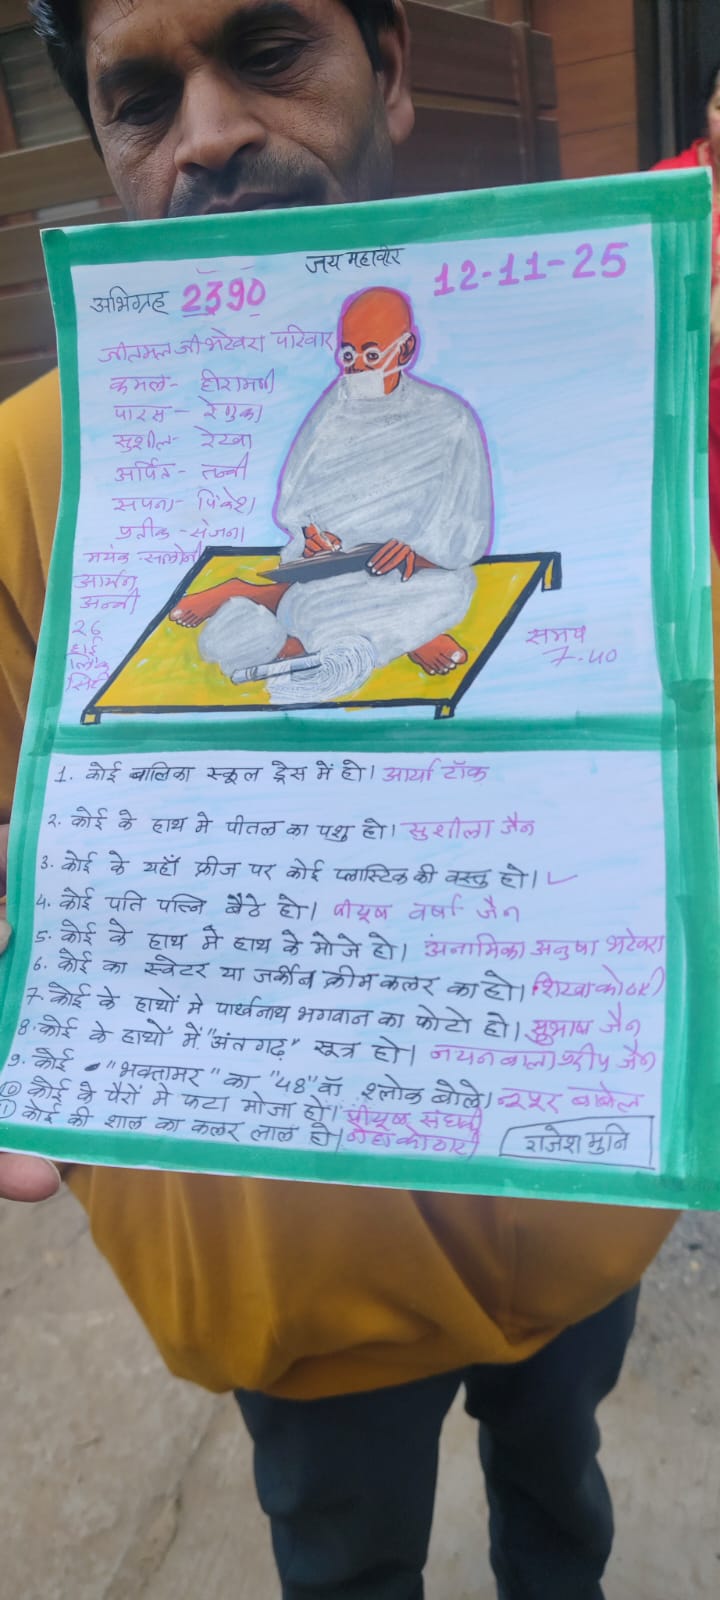 जय महावीर
12-11-25
अभिग्रह 2390
जीतमल जी भटेवरा परिवार
कमल - हीरामणी
पारस - रेणुका
सुशील - रेखा
अर्पित - तन्वी
सपना - पिंकेश
प्रतीक - संजना
मयंक - सलोनी
आर्मन
अन्वी
26
हाई
लिंक
सिटी
समय
7.40
1. कोई बालिका स्कूल ड्रेस में हो। आर्या टॉक
2. कोई के हाथ मे पीतल का पशु हो। सुशीला जैन
3. कोई के यहाँ फ्रीज पर कोई प्लास्टिक की वस्तु हो। ✓
4. कोई पति पत्नि बैठे हो। पीयूष वर्षा जैन
5. कोई के हाथ मे हाथ के मोजे हो। अनामिका अनुषा भटेवरा
6. कोई का स्वेटर या जर्कीन क्रीम कलर का हो। शिखा कोठारी
7. कोई के हाथों मे पार्श्वनाथ भगवान का फोटो हो। सुभाष जैन
8. कोई के हाथों में "अंतगढ़" सूत्र हो। नयनबाला प्रदीप जैन
9. कोई "भक्तामर" का "48" वाँ श्लोक बोले।
10 कोई के पैरों मे फटा मोजा हो। पीयूष संघवी
11 कोई की शाल का कलर लाल हो। नेहा कोठारी
राजेश मुनि